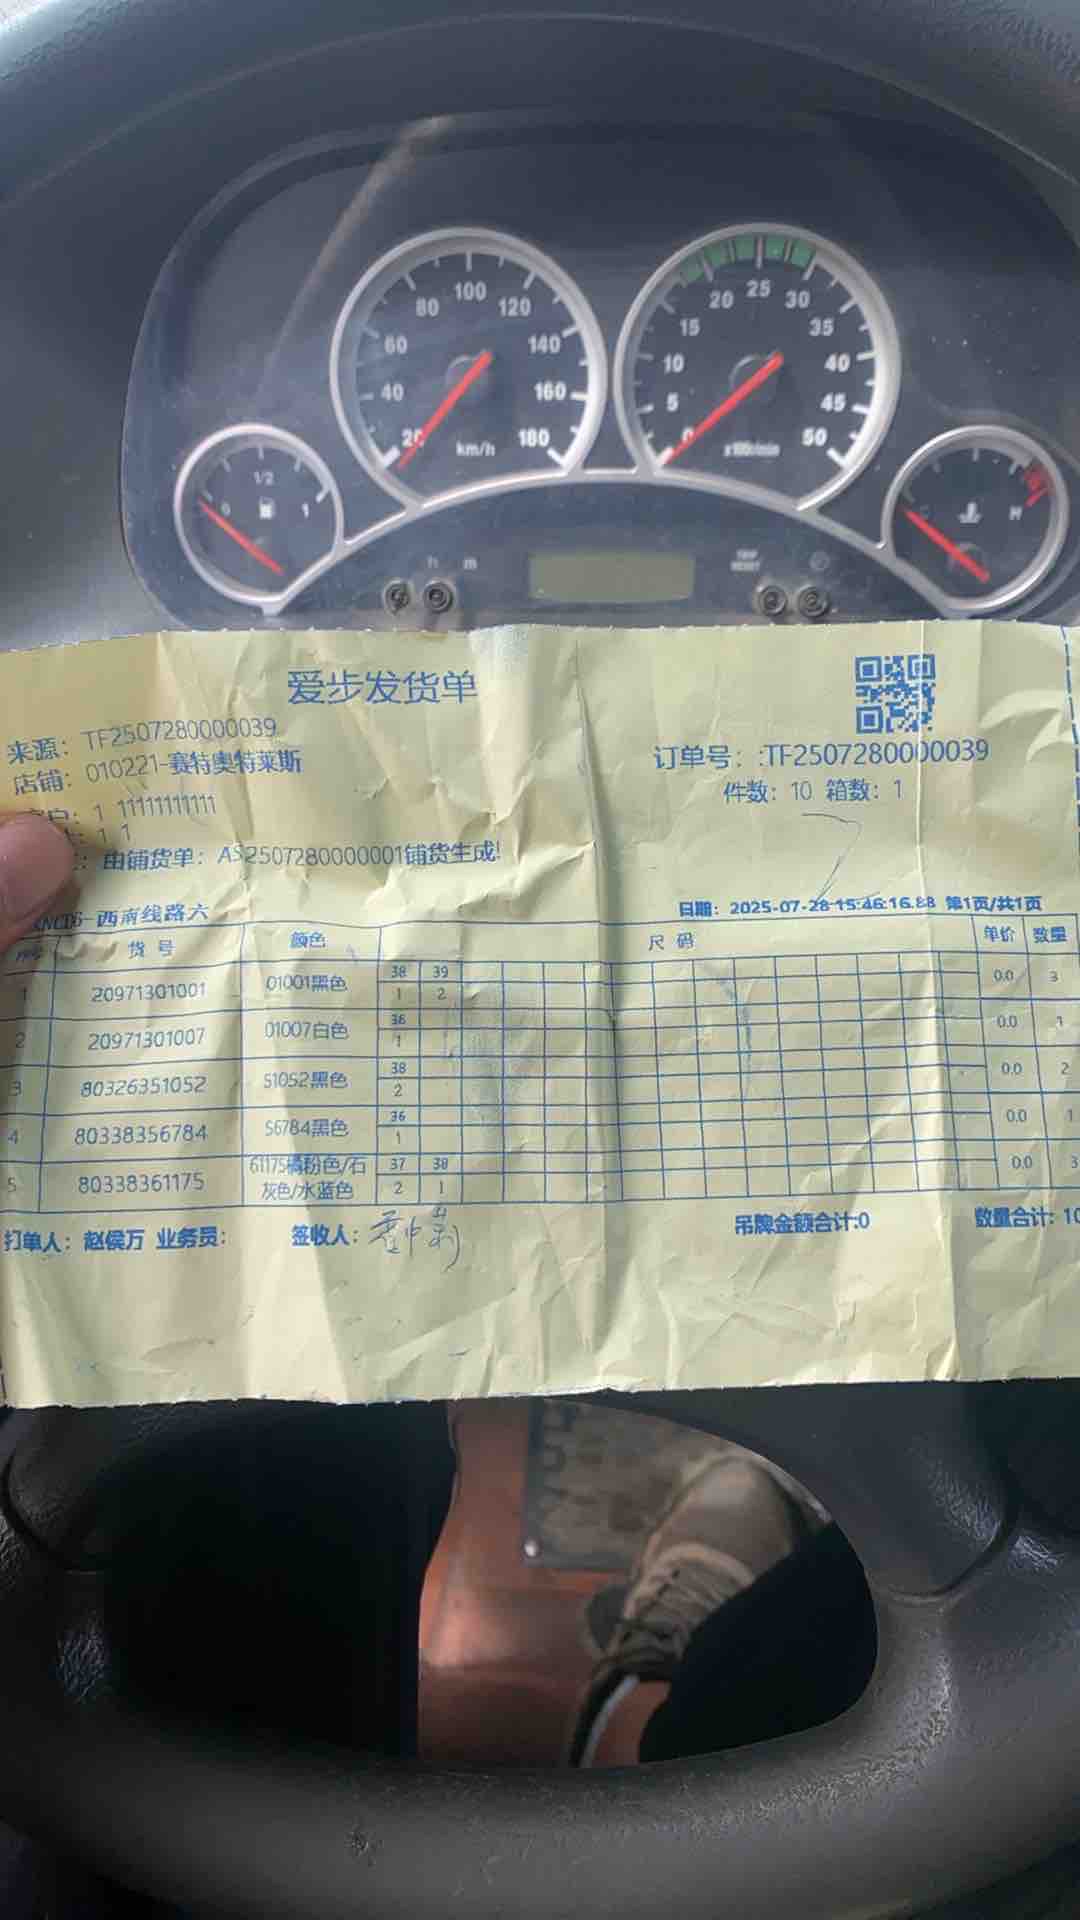 100
80 120
60 140
40 160
20 km/h 180
25
20 30
15 35
10 40
5 45
0 50
1/2
0 1
C H
h m
爱步发货单
来源: TF2507280000039
店铺: 010221-赛特奥特莱斯
1 11111111111
1 1
由铺货单: AS2507280000001铺货生成!
订单号: :TF2507280000039
件数: 10 箱数: 1
西南线路六
日期: 2025-07-28 15:46:16.88 第1页/共1页
货号 颜色 尺码 单价 数量
38 39
1 20971301001 01001黑色 1 2 0.0 3
36
2 20971301007 01007白色 1 0.0 1
38
3 80326351052 51052黑色 2 0.0 2
36
4 80338356784 56784黑色 1 0.0 1
61175橘粉色/石 37 38
5 80338361175 灰色/水蓝色 2 1 0.0 3
打单人: 赵侯万 业务员: 签收人: 吊牌金额合计:0 数量合计: 10